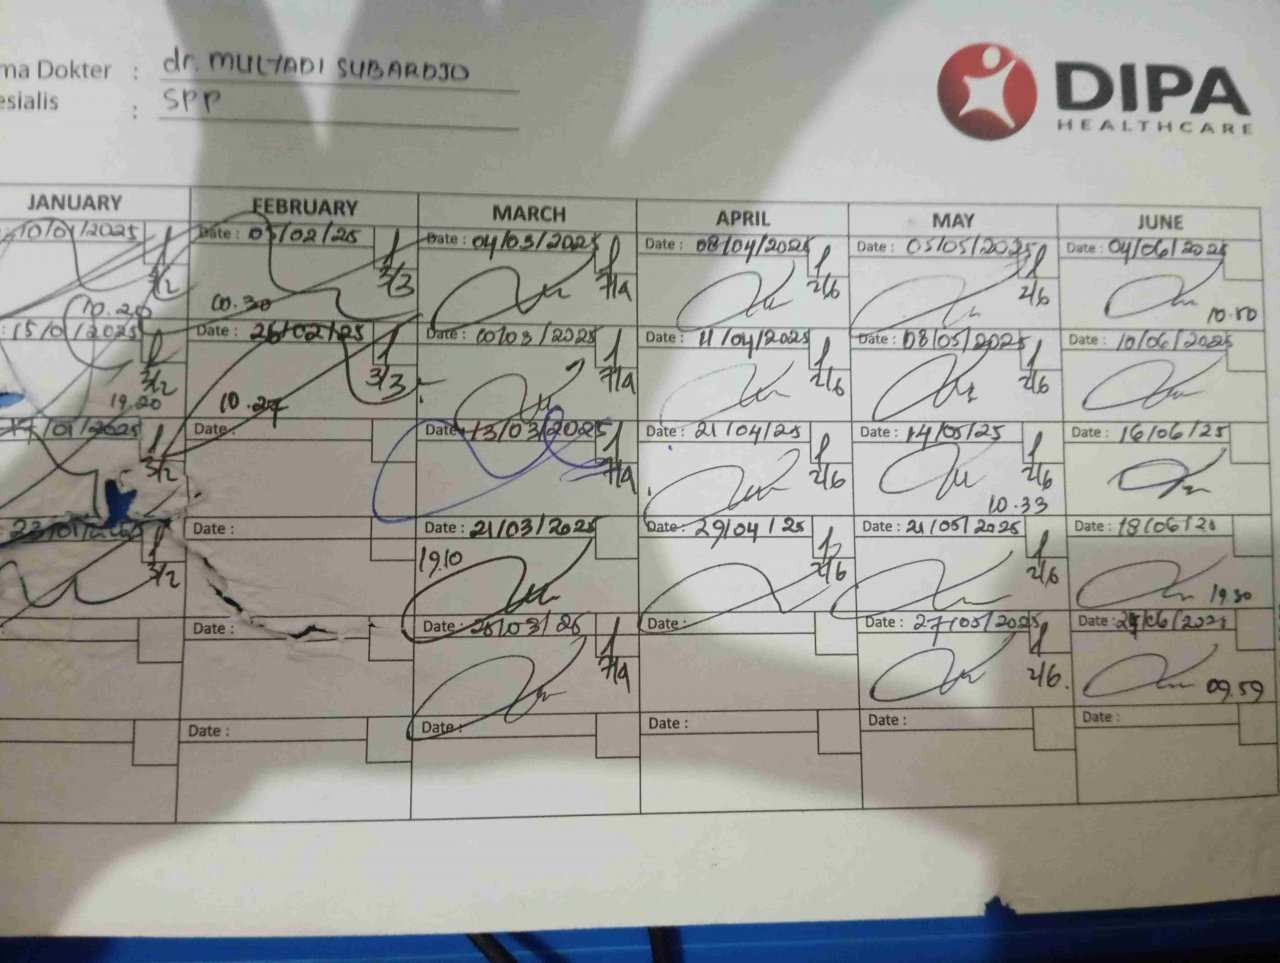 ma Dokter : dr. MULYADI SUBARDJO
esialis : SPP
DIPA
HEALTHCARE
JANUARY FEBRUARY MARCH APRIL MAY JUNE
10/01/2025 Date : 02/25 Date : 04/03/2025 Date : 08/04/2025 Date : 05/05/2025 Date : 04/06/2025
3/2 3/3 7/4 2/6 2/6
10.20 10.30 10.50
: 15/01/2025 Date : 26/02/25 Date : 10/03/2025 Date : 11/04/2025 Date : 08/05/2025 Date : 10/06/2025
3/2 3/3 7/4 2/6 2/6
19.20 10.27
/01/2025 Date : Date : 13/03/2025 Date : 21/04/25 Date : 14/05/25 Date : 16/06/25
3/2 7/4 2/6 2/6
10.33
23/01/ Date : Date : 21/03/2025 Date : 29/04/25 Date : 21/05/2025 Date : 18/06/2
3/2 19.10 2/6 2/6 19.30
Date : Date : 25/03/25 Date : Date : 27/05/2025 Date : /06/202
7/4 2/6. 09.59
Date : Date : Date : Date : Date :